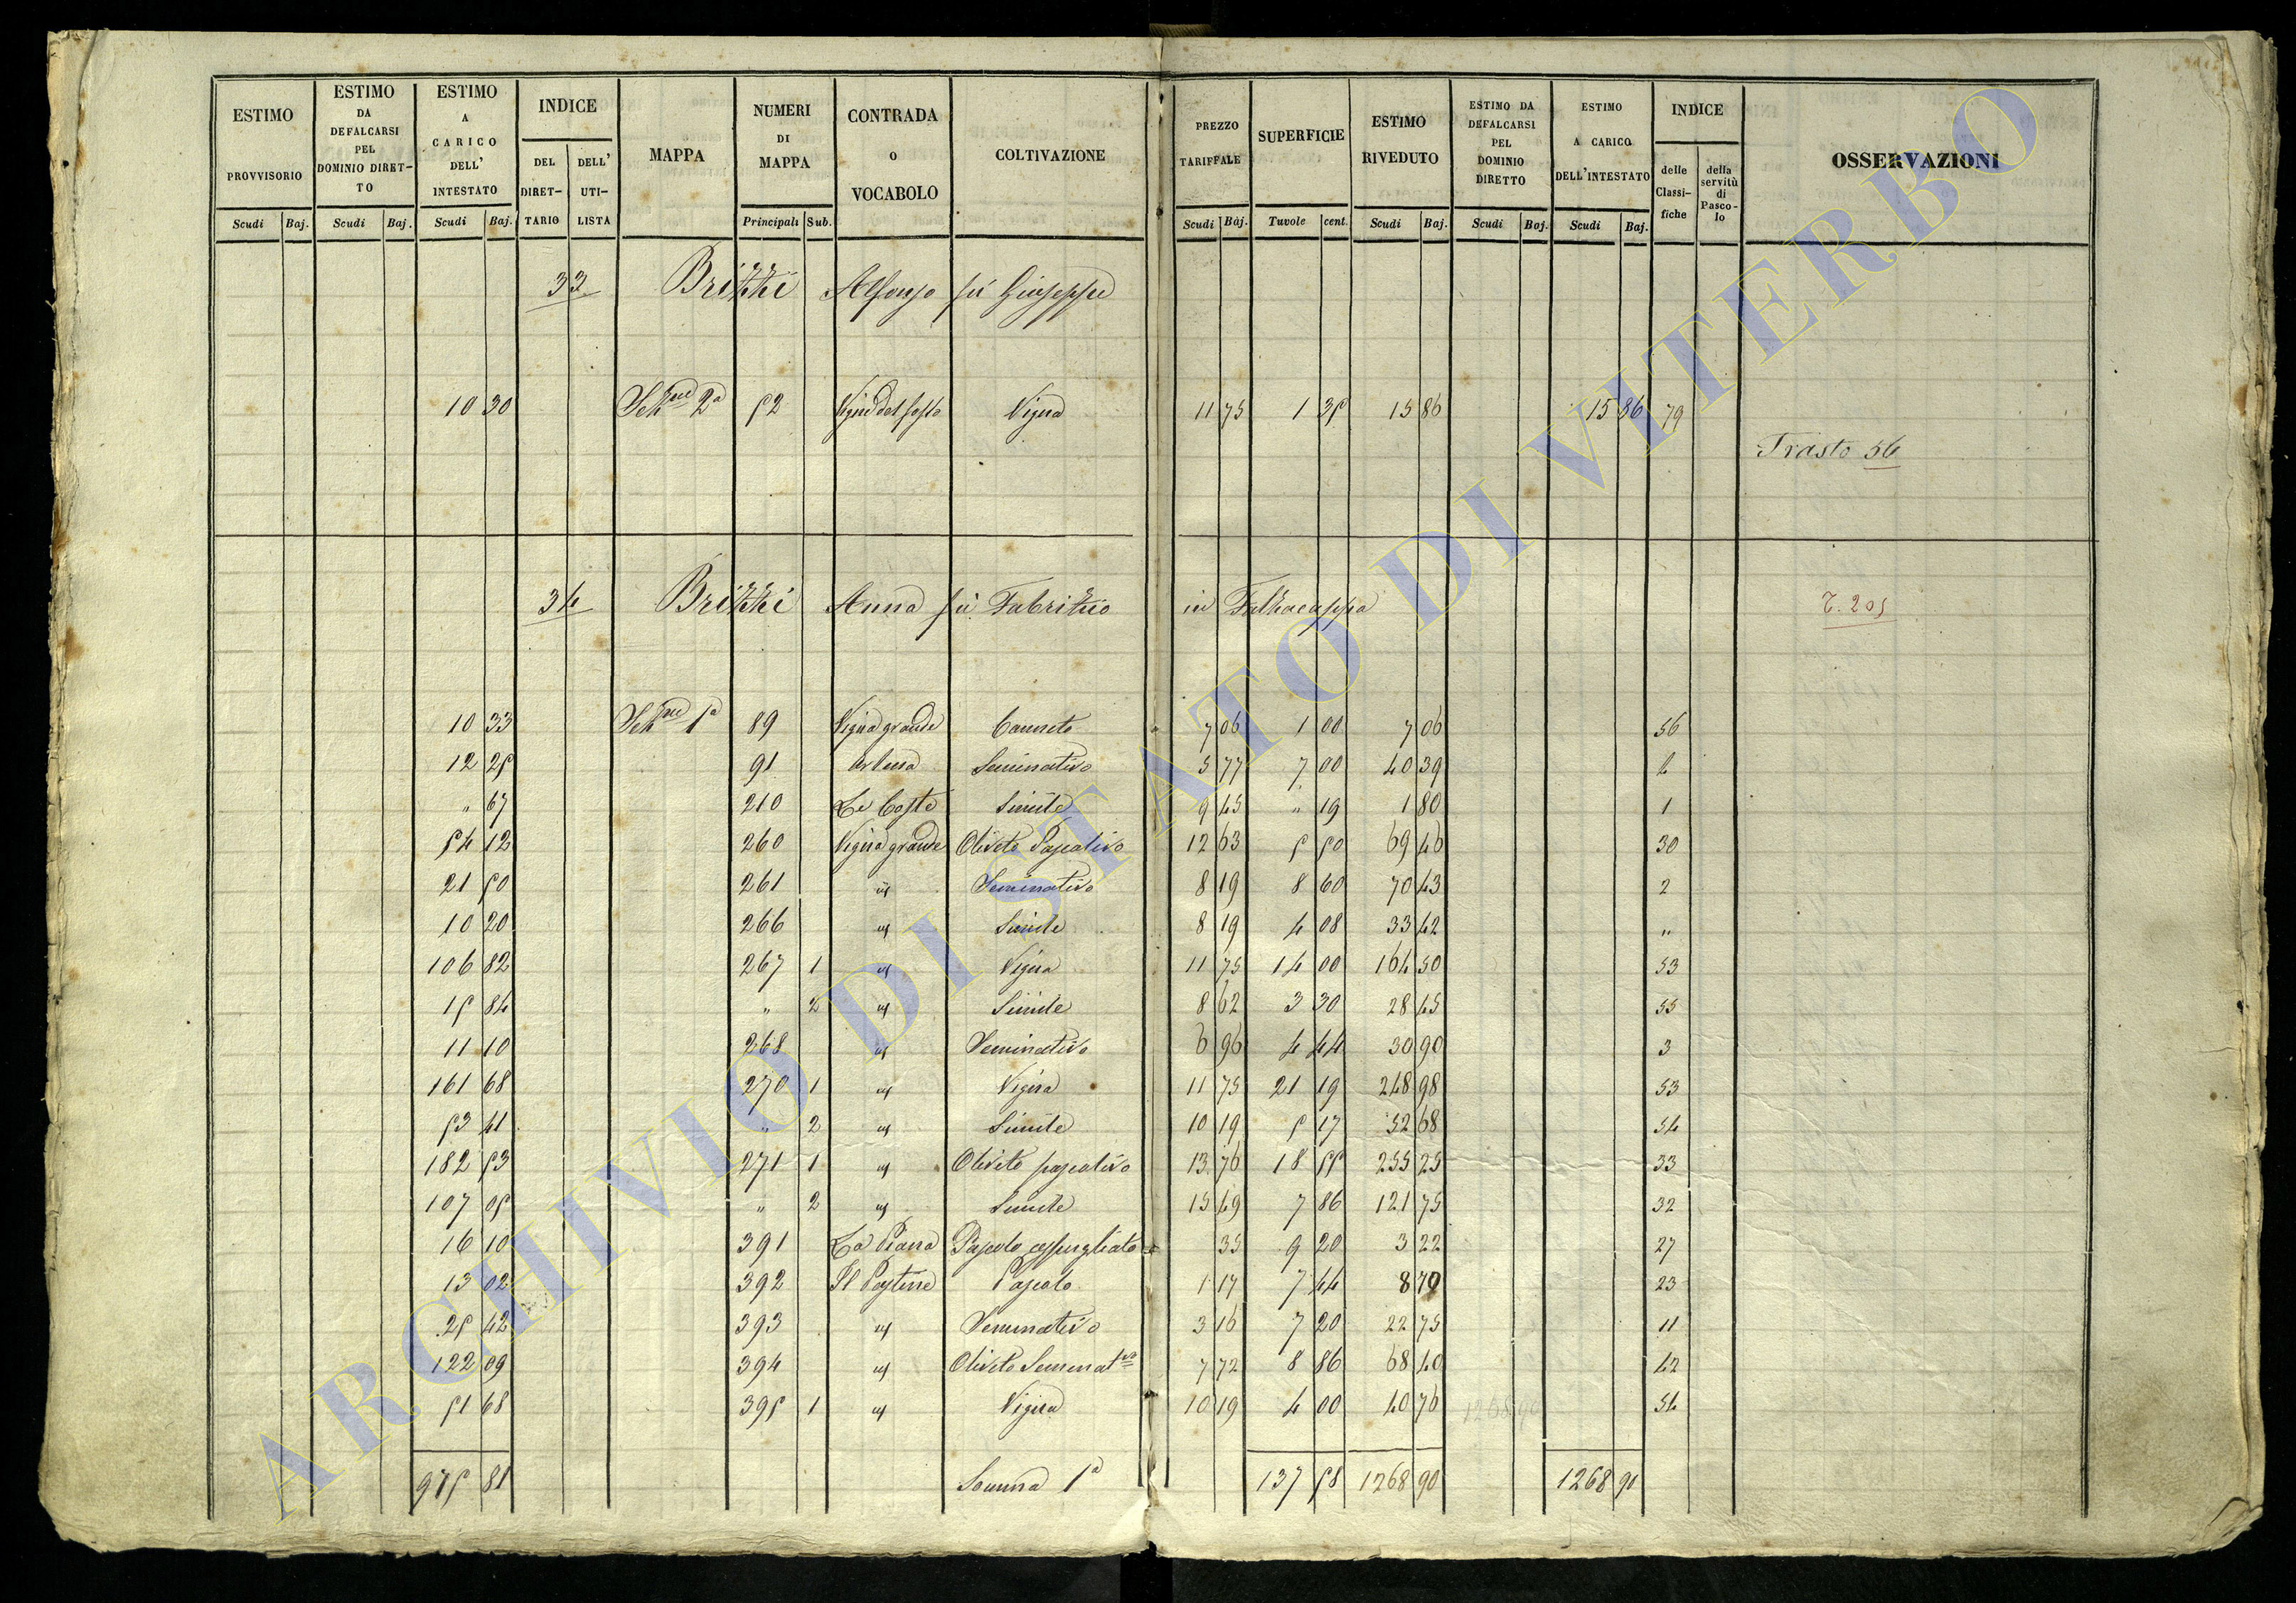 ESTIMO PROVVISORIO Scudi Baj.
ESTIMO DA DEFALCARSI PEL DOMINIO DIRETTO Scudi Baj.
ESTIMO A CARICO DELL' INTESTATO Scudi Baj.
INDICE DEL DIRETTARIO DELL' UTILISTA
MAPPA
NUMERI DI MAPPA Principali Sub.
CONTRADA O VOCABOLO
COLTIVAZIONE
PREZZO TARIFFALE Scudi Baj.
SUPERFICIE Tavole cent.
ESTIMO RIVEDUTO Scudi Baj.
ESTIMO DA DEFALCARSI PEL DOMINIO DIRETTO Scudi Baj.
ESTIMO A CARICO DELL'INTESTATO Scudi Baj.
INDICE delle Classifiche della servitù di Pascolo
OSSERVAZIONI
33 Brizzi Alfonso fù Giuseppe
10 30 Sez.ne 2a 52 Vigna Vigna 11 75 1 35 15 86 15 86 79
Trasto 56
34 Brizzi Anna fù Fabrizio in Falzacappa T. 205
10 33 Sez.ne 1a 89 Vigna grande Canneto 7 06 1 00 7 06 56
12 25 91 Seminativo 5 77 7 00 40 39 4
" 67 210 Le Coste Simile 9 45 " 19 1 80 1
54 12 260 Vigna grande Oliveto Pascolivo 12 63 5 50 69 46 30
21 50 261 id Seminativo 8 19 8 60 70 43 2
10 20 266 id Simile 8 19 4 08 33 42 "
106 82 267 1 id Vigna 11 75 14 00 164 50 53
15 84 " 2 id Simile 8 62 3 30 28 45 55
11 10 268 id Seminativo 6 96 4 44 30 90 3
161 68 270 1 id Vigna 11 75 21 19 248 98 53
53 41 " 2 id Simile 10 19 5 17 52 68 54
182 53 271 1 id Oliveto pascolivo 13 76 18 55 255 25 33
107 05 " 2 id Simile 15 49 7 86 121 75 32
16 10 391 La Piana Pascolo cespugliato 35 9 20 3 22 27
13 02 392 Pascolo 1 17 7 44 8 70 23
25 42 393 id Seminativo 3 16 7 20 22 75 11
122 09 394 id Oliveto Seminat.vo 7 72 8 86 68 40 42
51 68 395 1 id Vigna 10 19 4 00 40 76 1268 90 54
975 81 Somma 1a 137 58 1268 90 1268 90
ARCHIVIO DI STATO DI VITERBO